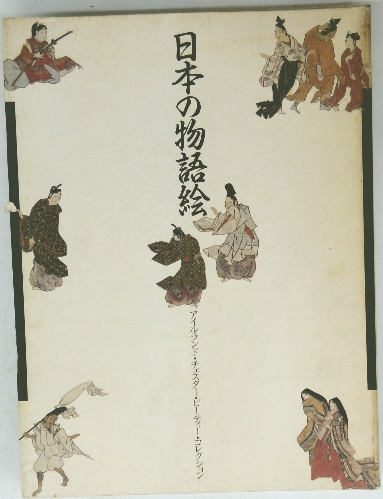 日本の物語絵
アイルランド・チェスター・ビーティー・コレクション